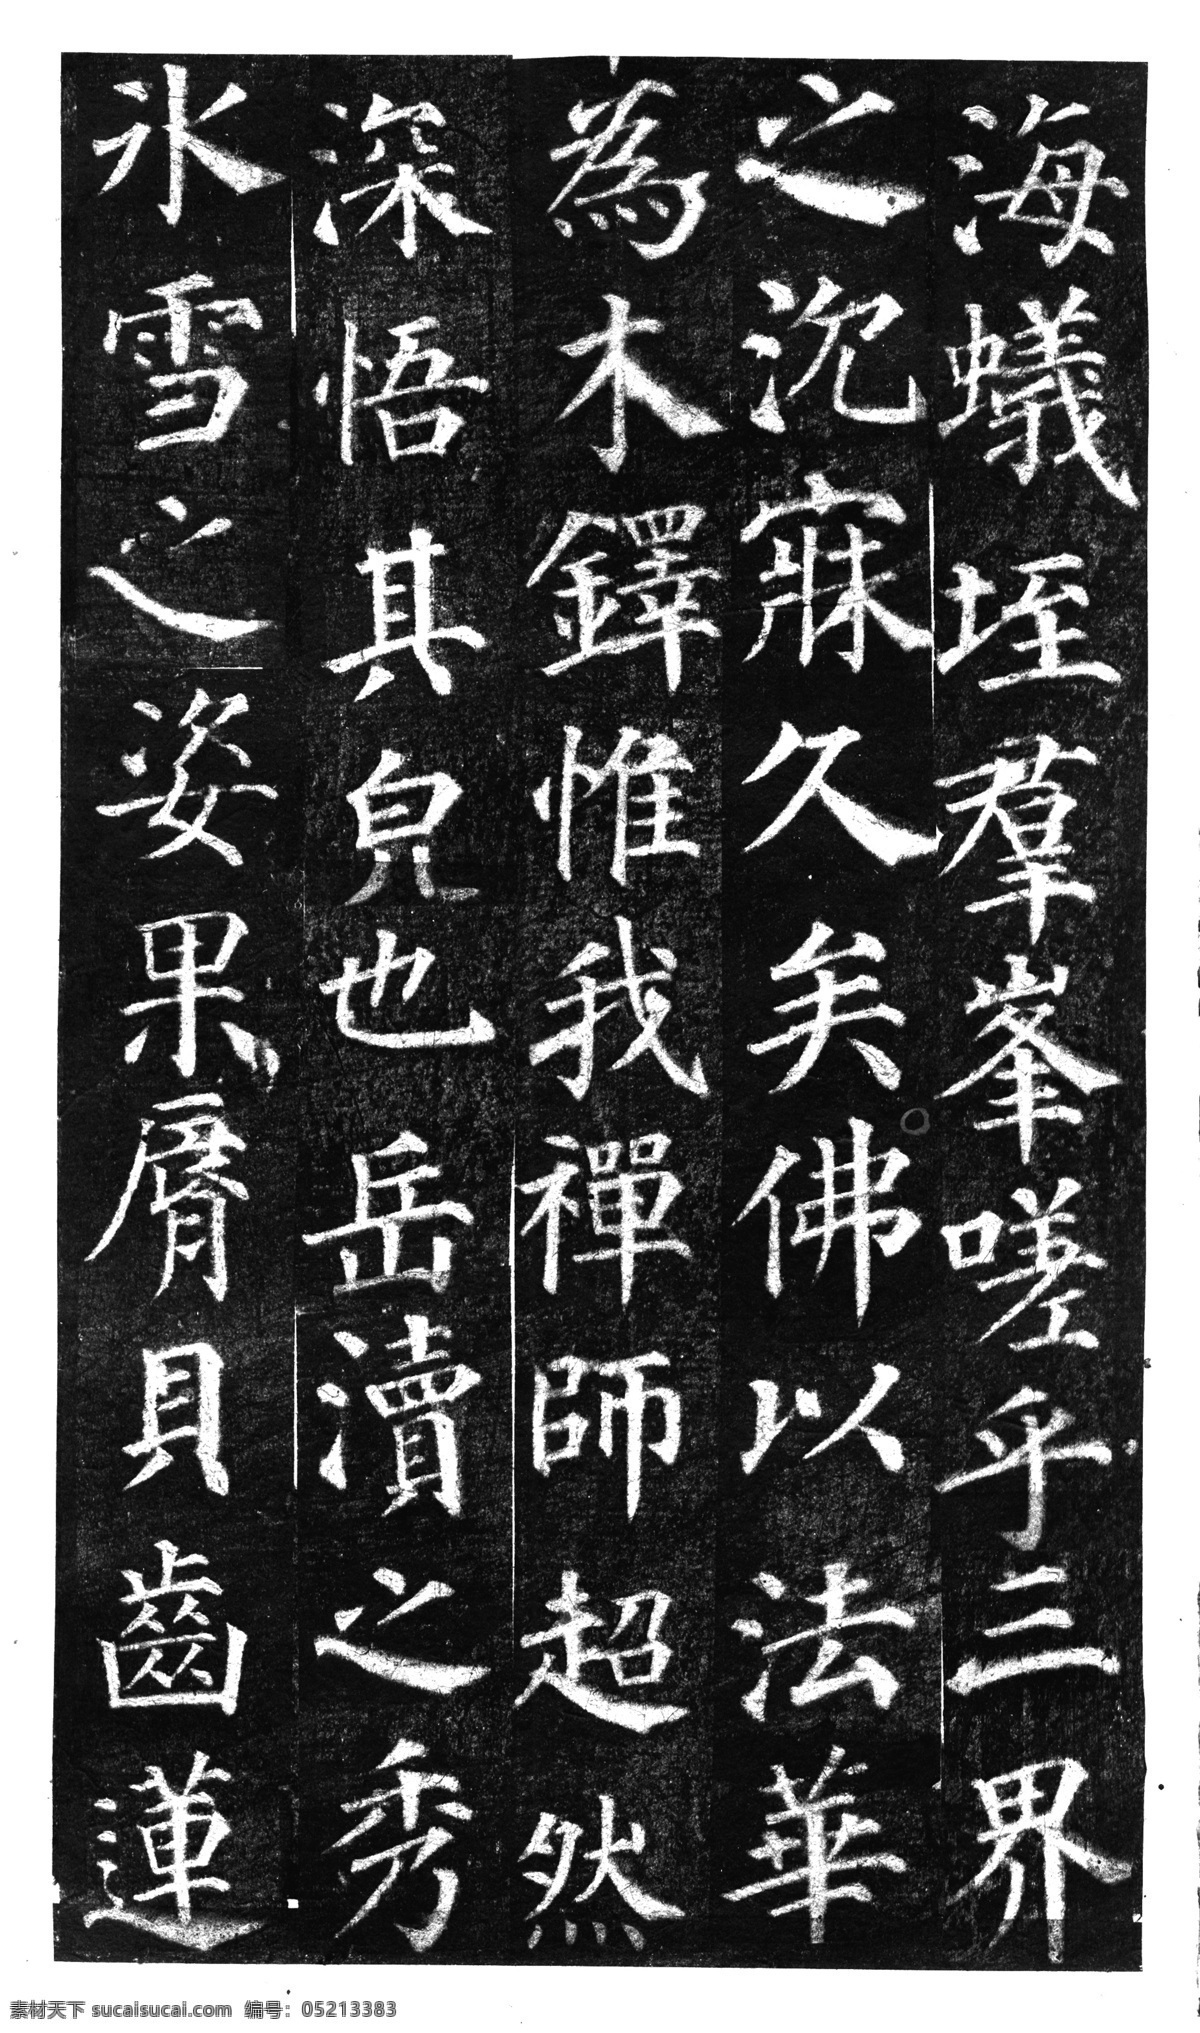 海蟻垤羣峯嗟乎三界
之沉寐久矣佛以法華
為木鐸惟我禪師超然
深悟其皃也岳瀆之秀
氷雪之姿果脣貝齒蓮
素材天下 sucaisucai.com 编号：05213383